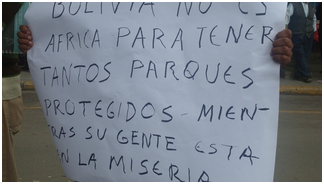 BOLIVIA NO ES
AFRICA PARA TENER
TANTOS PARQUES
PROTEGIDOS - MIEN-
TRAS SU GENTE ESTA
EN LA MISERIA